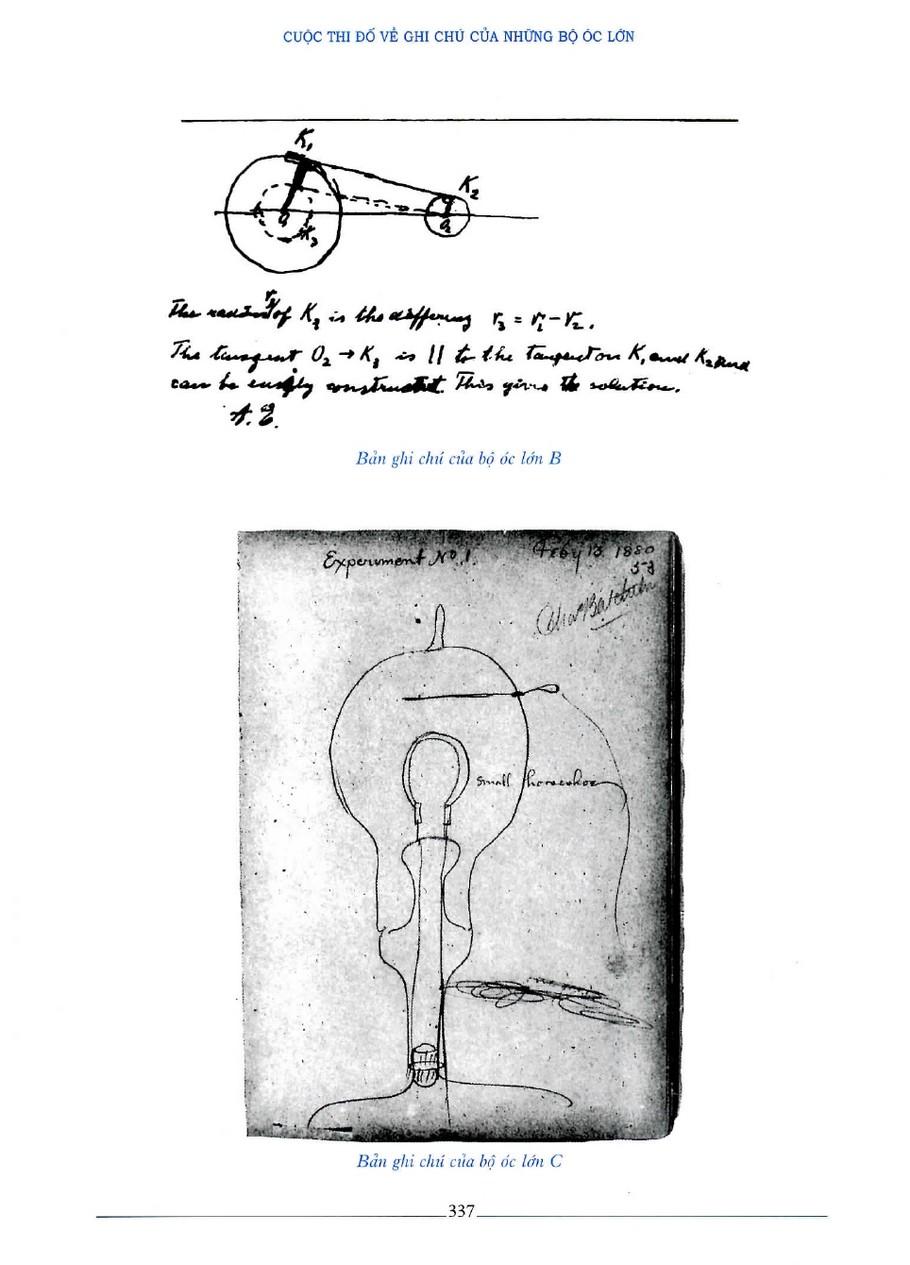 CUỘC THI ĐỐ VỀ GHI CHÚ CỦA NHỮNG BỘ ÓC LỚN
K₁
K₂
K₃
The radius of K₃ is the r₃ = r₁ − r₂.
The tangent O₂ → K₃ is || to the tangent on K₁ and K₂ and
can be easily constructed. This gives the solution.
A. E.
Bản ghi chú của bộ óc lớn B
Experiment Nº 1. Feby 13 1880
small horseshoe
Bản ghi chú của bộ óc lớn C
337